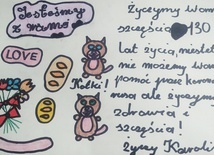 Jesteśmy
z wami
LOVE
Kotki!
Życzymy Wam
szczęścia 130
lat życia, niestety
nie możemy Wam
pomóc przez korona
rusa ale życzymy
zdrowia i
szczęścia!
Karoli